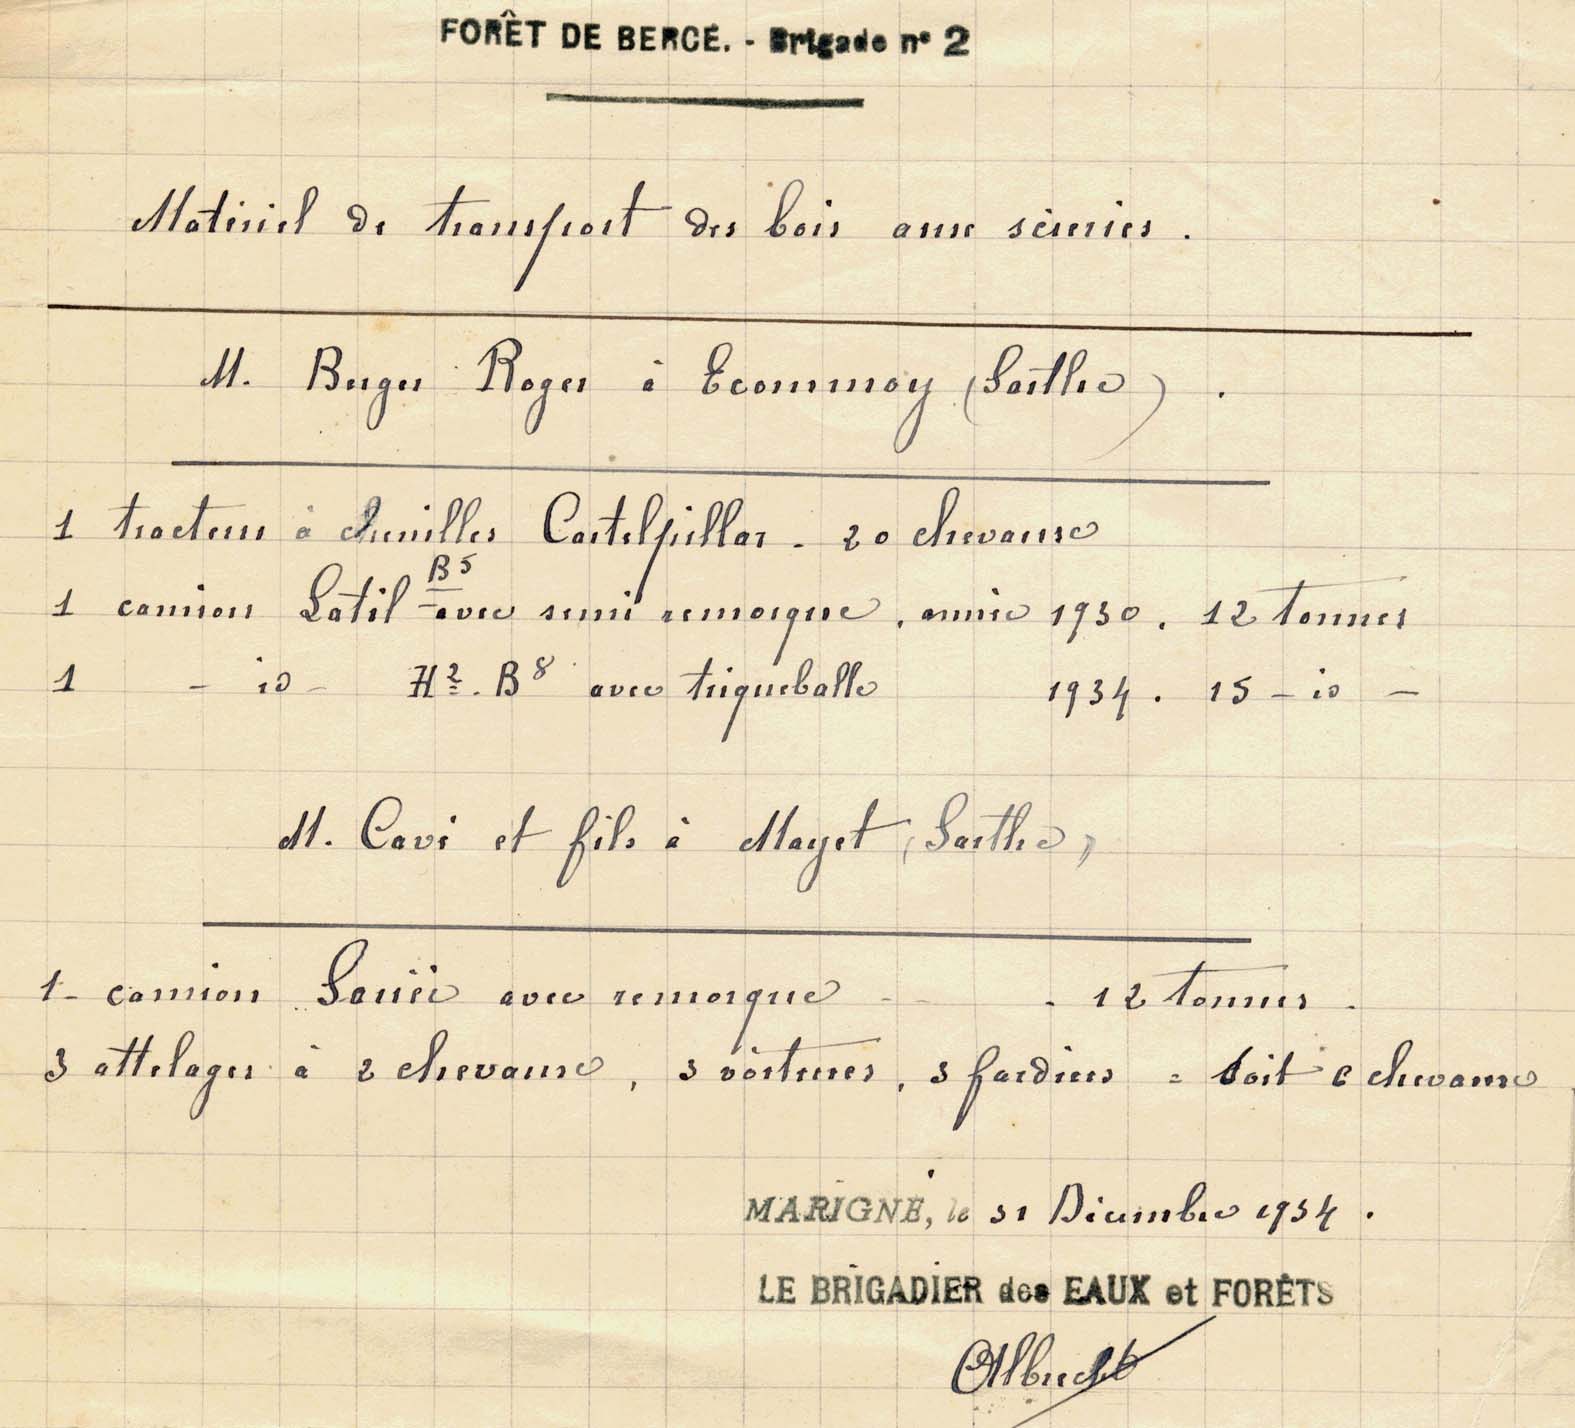 FORÊT DE BERCÉ. - Brigade n° 2
Matériel de transport des bois aux scieries.
M. Berger Roger à Ecommoy (Sarthe).
1 tracteur à chenilles Cartelpillar - 20 chevaux
B5
1 camion Latil avec semi remorque, année 1930. 12 tonnes
1 - id - H2. B8 avec triqueballe 1934. 15 - id -
M. Cavé et fils à Mayet (Sarthe)
1 - camion Saurer avec remorque - - - 12 tonnes.
3 attelages à 2 chevaux, 3 voitures, 3 fardiers = soit 6 chevaux
MARIGNÉ, le 31 Décembre 1934.
LE BRIGADIER des EAUX et FORÊTS
Albrecht